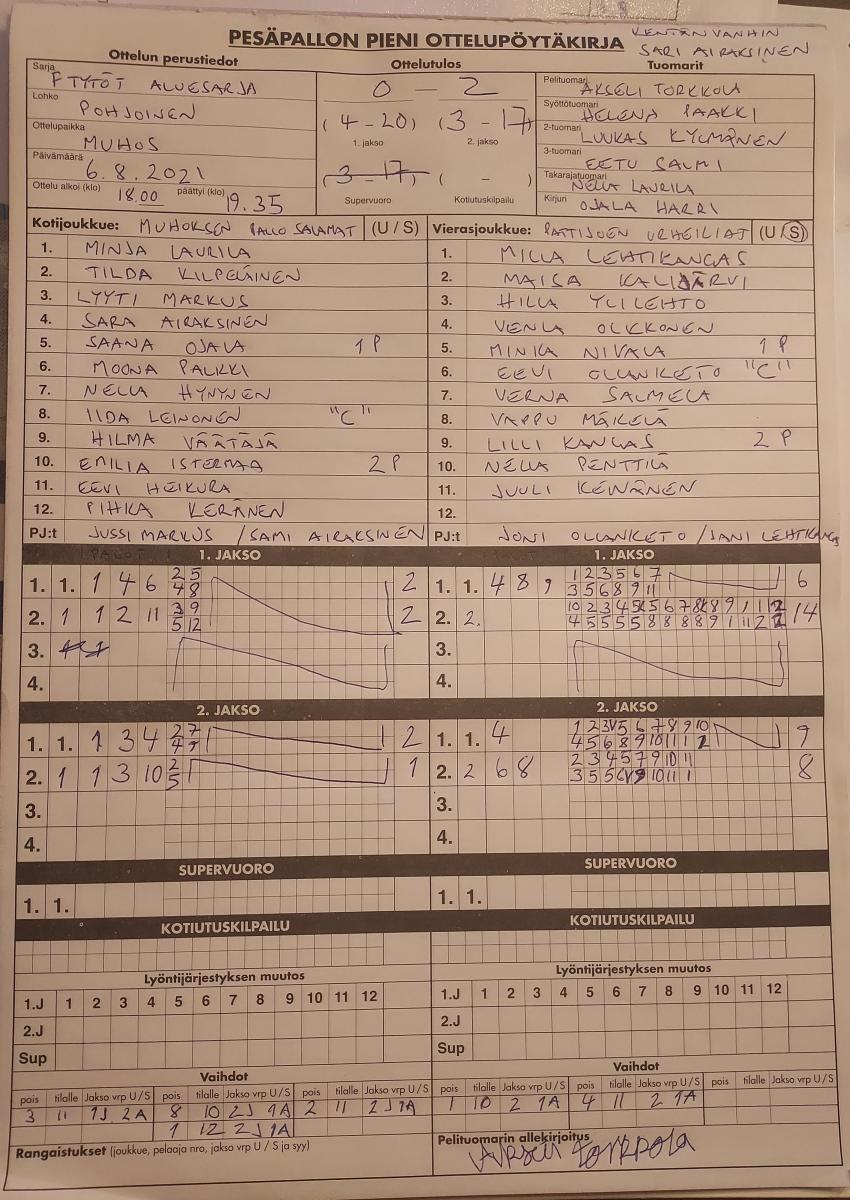 PESÄPALLON PIENI OTTELUPÖYTÄKIRJA
KENTÄN VANHIN
SARI AIRAKSINEN
Ottelun perustiedot
Ottelutulos
Tuomarit
Sarja
F TYTÖT ALUESARJA
Lohko
POHJOINEN
Ottelupaikka
MUHOS
Päivämäärä
6.8.2021
Ottelu alkoi (klo) 18.00 päättyi (klo) 19.35
0 — 2
(4-20) (3-17)
1. jakso 2. jakso
(3-17) ( - )
Supervuoro Kotiutuskilpailu
Pelituomari
AKSELI TORKKOLA
Syöttötuomari
HELENA PAAKKI
2-tuomari
LUUKAS KYLMÄNEN
3-tuomari
EETU SALMI
Takarajatuomari
NELLA LAURILA
Kirjuri
OJALA HARRI
Kotijoukkue: MUHOKSEN PALLO SALAMAT (U / S)
1. MINJA LAURILA
2. TILDA KILPELÄINEN
3. LYYTI MARKUS
4. SARA AIRAKSINEN
5. SAANA OJALA 1P
6. MOONA PALKKI
7. NELLA HYNYNEN
8. IIDA LEINONEN "C"
9. HILMA VÄÄTÄJÄ
10. EMILIA ISTERMAA 2P
11. EEVI HEIKURA
12. PIHKA KERÄNEN
PJ:t JUSSI MARKUS / SAMI AIRAKSINEN
Vierasjoukkue: PATTIJOEN URHEILIJAT (U / S)
1. MILLA LEHTIKANGAS
2. MAISA KALIJÄRVI
3. HILLA YLILEHTO
4. VENLA OLKKONEN
5. MINKA NIVALA 1P
6. EEVI OLLANKETO "C"
7. VERNA SALMELA
8. VAPPU MÄKELÄ
9. LILLI KANGAS 2P
10. NELLA PENTTILÄ
11. JUULI KEINÄNEN
12.
PJ:t JONI OLLANKETO / JANI LEHTIKANGAS
1. JAKSO
1. 1. 1 4 6 2 5 2
4 8
2. 1 1 2 11 3 9 2
5 12
3.
4.
1. JAKSO
1. 1. 4 8 9 1 2 3 5 6 7 6
3 5 6 8 9 11
2. 2. 14
3.
4.
2. JAKSO
1. 1. 1 3 4 2 7 2
4 9
2. 1 1 3 10 2 1
5
3.
4.
2. JAKSO
1. 1. 4 9
2. 2 6 8 2 3 4 5 7 9 10 11 8
3.
4.
SUPERVUORO
1. 1.
SUPERVUORO
1. 1.
KOTIUTUSKILPAILU
KOTIUTUSKILPAILU
Lyöntijärjestyksen muutos
1.J 1 2 3 4 5 6 7 8 9 10 11 12
2.J
Sup
Lyöntijärjestyksen muutos
1.J 1 2 3 4 5 6 7 8 9 10 11 12
2.J
Sup
Vaihdot
pois tilalle Jakso vrp U/S pois tilalle Jakso vrp U/S pois tilalle Jakso vrp U/S
3 11 1J 2A 8 10 2J 1A 2 11 2J 1A
1 12 2J 1A
Vaihdot
pois tilalle Jakso vrp U/S pois tilalle Jakso vrp U/S pois tilalle Jakso vrp U/S
1 10 2 1A 4 11 2 1A
Rangaistukset (joukkue, pelaaja nro, jakso vrp U / S ja syy)
Pelituomarin allekirjoitus
Akseli Torkkola